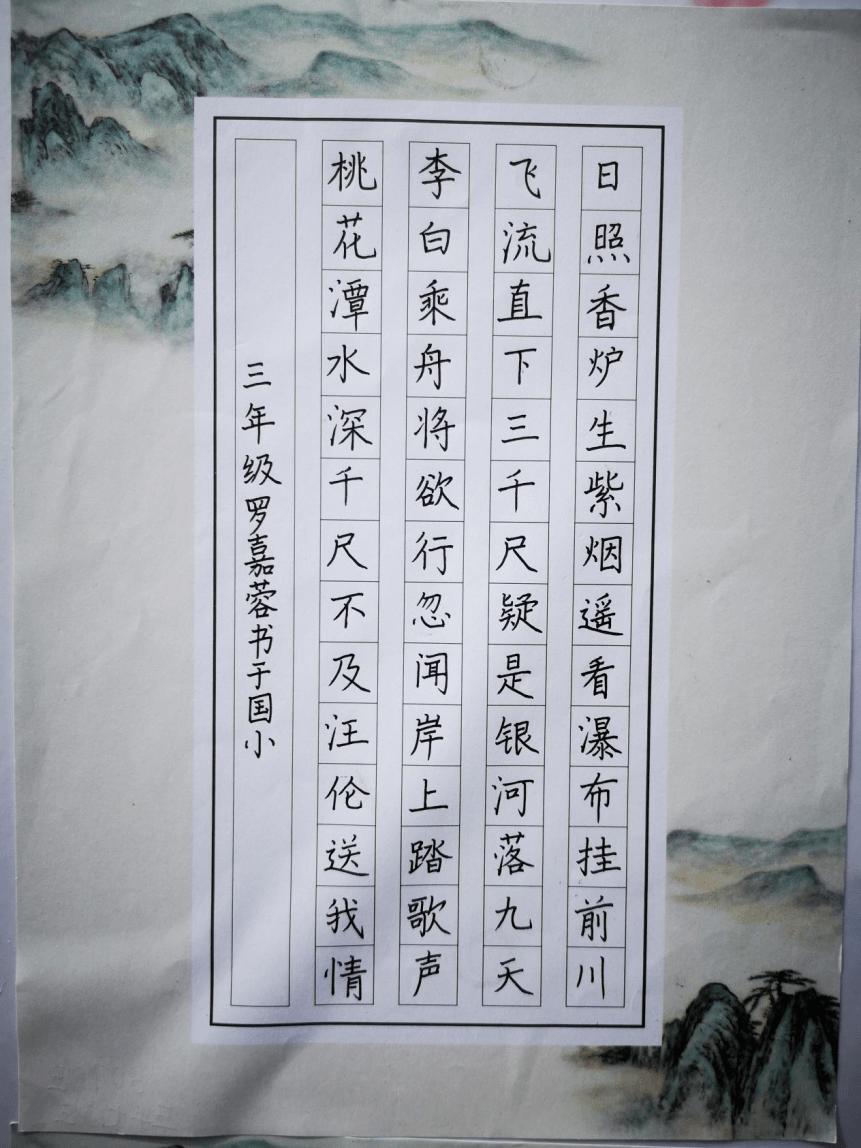 日照香炉生紫烟遥看瀑布挂前川
飞流直下三千尺疑是银河落九天
李白乘舟将欲行忽闻岸上踏歌声
桃花潭水深千尺不及汪伦送我情
三年级罗嘉蓉书于国小